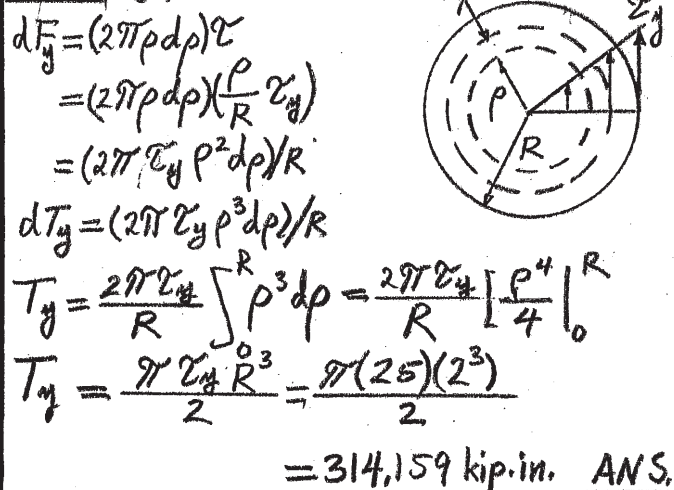 dF_y = (2πρdρ)τ
= (2πρdρ)(ρ/R τ_y)
= (2π τ_y ρ²dρ)/R
dT_y = (2π τ_y ρ³dρ)/R
T_y = 2πτ_y/R ∫₀ᴿ ρ³dρ = 2πτ_y/R [ρ⁴/4|₀ᴿ
T_y = π τ_y R³/2 = π(25)(2³)/2
= 314,159 kip.in. ANS.
τ_y
ρ
R